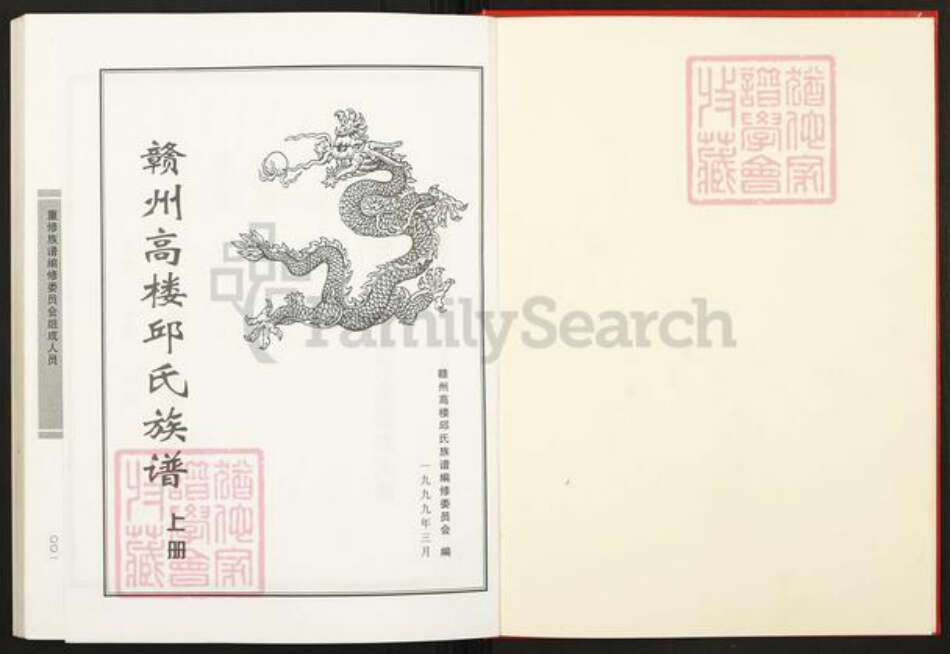 赣州高楼邱氏族谱 上册
赣州高楼邱氏族谱编修委员会 编
一九九九年三月
重修族谱编修委员会组成人员
〇〇一
猶他家
譜學會
收藏
猶他家
譜學會
收藏
FamilySearch